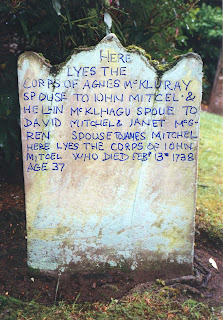 HERE
LYES THE
CORPS OF AGNES MCKLURAY
SPOUSE TO IOHN MITCEL &
HELLIN MCKLHAGU SPOUE TO
DAVID MITCHEL & JANET MCG-
REN SPOUSE TO JAMES MITCHEL
HERE LYES THE CORPS OF IOHN
MITCEL WHO DIED FEBR 13TH 1738
AGE 37